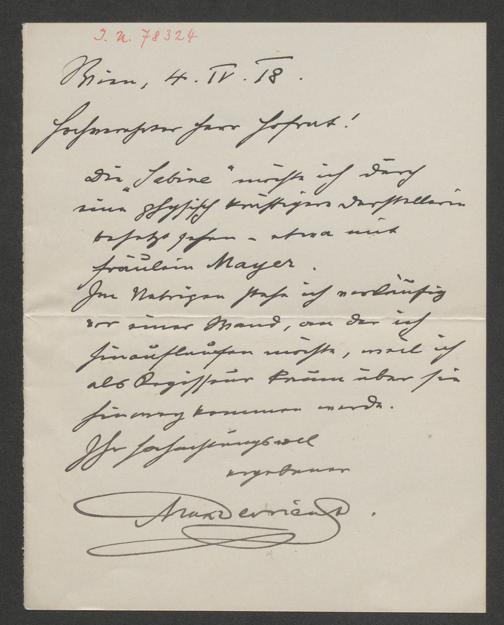 I. N. 78324
Wien, 4. IV. 18.
Hochverehrter Herr Hofrat!
Die „Sabine“ möchte ich durch
eine physisch kräftigere Darstellerin
besetzt sehen – etwa mit
Fräulein Mayer.
Im Uebrigen stehe ich vorläufig
vor einer Wand, an der ich
hinauflaufen möchte, weil ich
als Regisseur kaum über sie
hinweg kommen werde.
Ihr hochachtungsvoll
ergebener
Max Devrient.